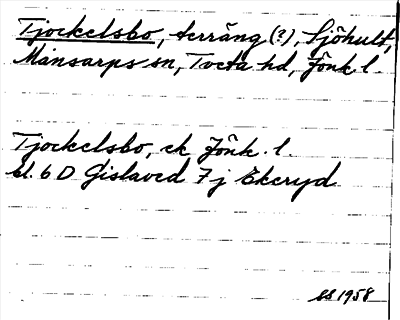 Tjockelsbo, terräng (?), Sjöhult,
Månsarps sn, Tveta hd, Jönk. l.
Tjockelsbo, ek Jönk. l.
bl. 6 D Gislaved 7 j Ekeryd
SS 1958